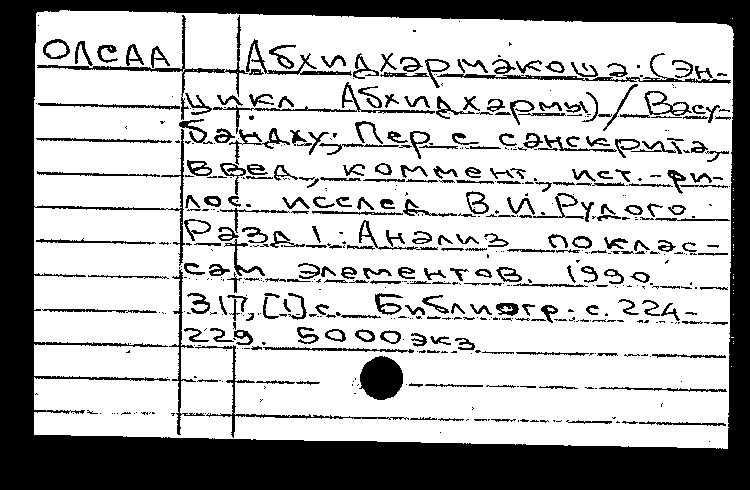 ОЛСАА Абхидхармакоша: (Эн-
цикл. Абхидхармы) / Васу-
бандху; Пер. с санскрита,
введ., коммент., ист.-фи-
лос. исслед. В.И. Рудого.
Разд 1: Анализ по клас-
сам элементов. 1990.
317, [1] с. Библиогр.: с. 224-
229. 5000 экз.